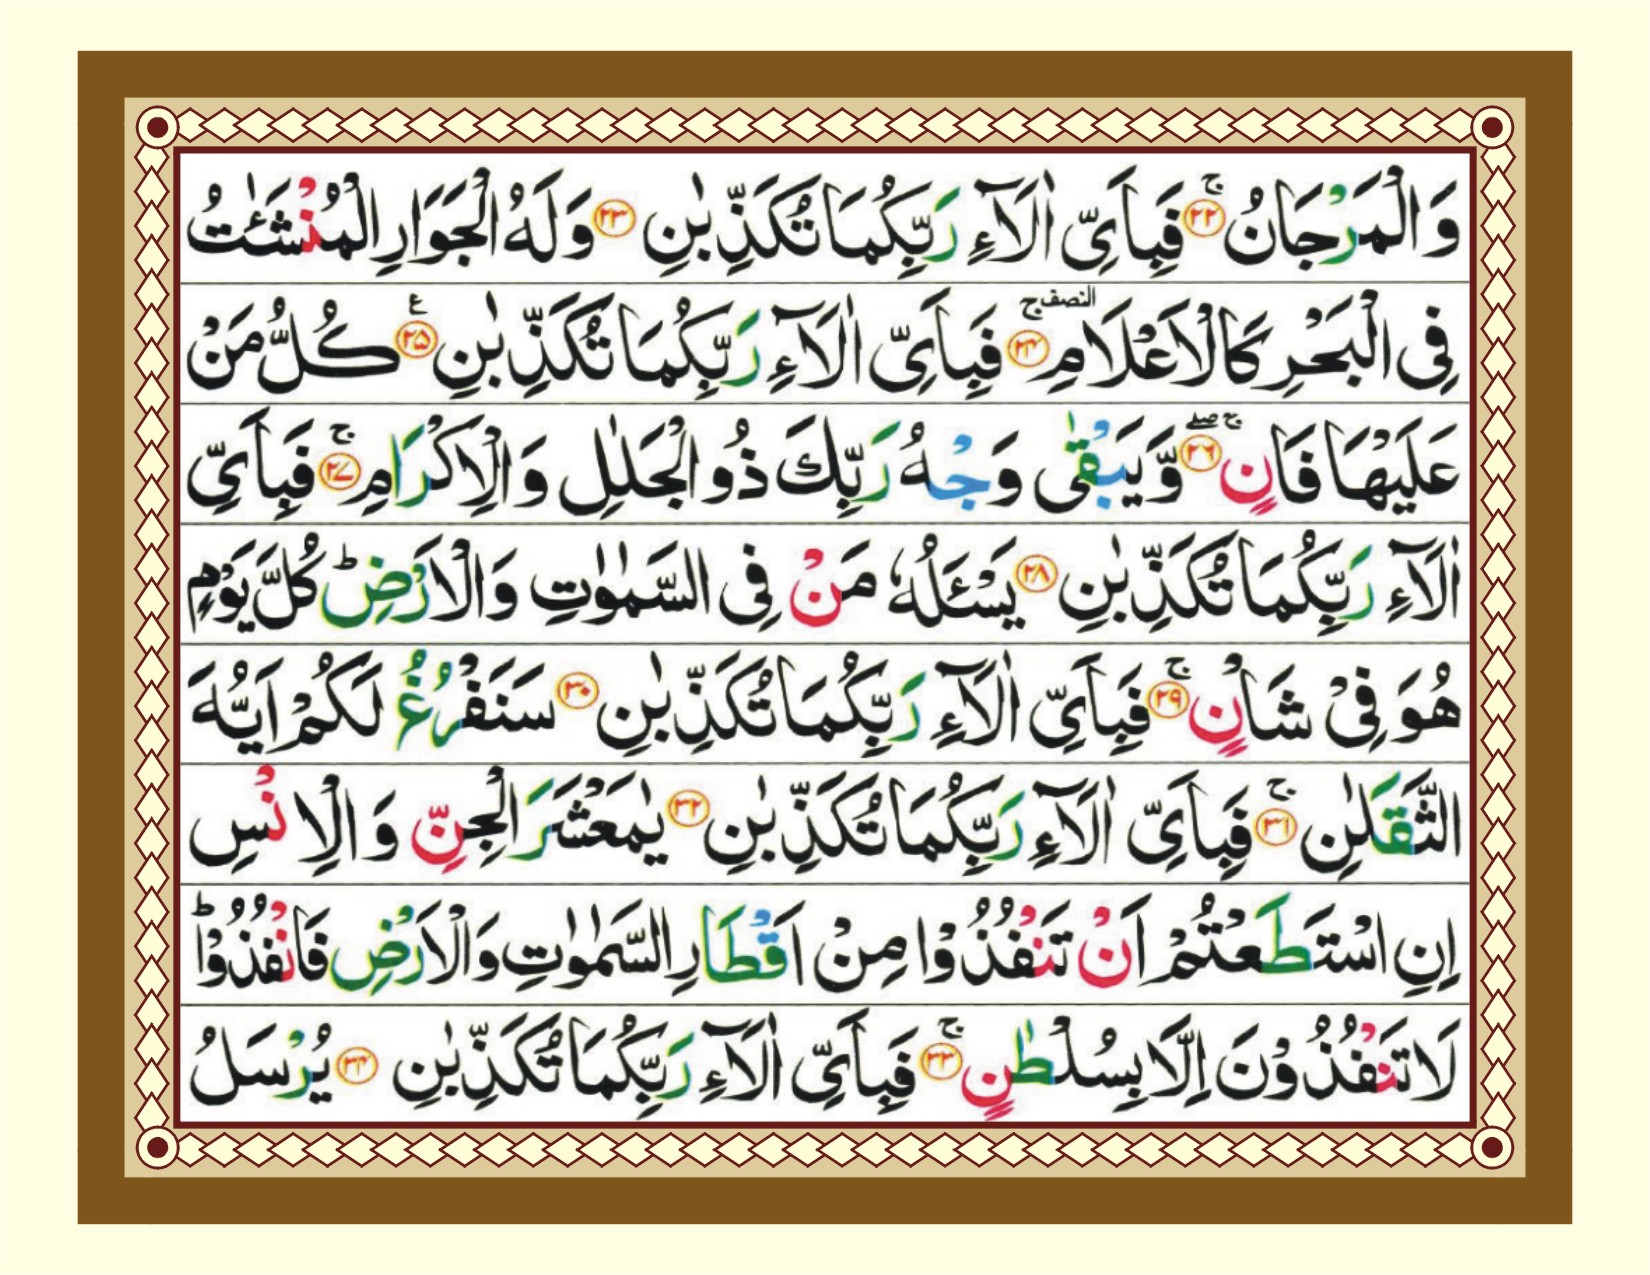 وَالْمَرْجَانُ ۚ ﴿۲۲﴾ فَبِاَىِّ اٰلَآءِ رَبِّكُمَا تُكَذِّبٰنِ ﴿۲۳﴾ وَلَهُ الْجَوَارِ الْمُنْشَئٰتُ
فِى الْبَحْرِ كَالْاَعْلَامِ ۚ النصف ﴿۲۴﴾ فَبِاَىِّ اٰلَآءِ رَبِّكُمَا تُكَذِّبٰنِ ﴿۲۵﴾ ع كُلُّ مَنْ
عَلَيْهَا فَانٍ ۚ ۖ ﴿۲۶﴾ وَّيَبْقٰى وَجْهُ رَبِّكَ ذُو الْجَلٰلِ وَالْاِكْرَامِ ۚ ﴿۲۷﴾ فَبِاَىِّ
اٰلَآءِ رَبِّكُمَا تُكَذِّبٰنِ ﴿۲۸﴾ يَسْئَلُهٗ مَنْ فِى السَّمٰوٰتِ وَالْاَرْضِ ؕ كُلَّ يَوْمٍ
هُوَ فِىْ شَاْنٍ ۚ ﴿۲۹﴾ فَبِاَىِّ اٰلَآءِ رَبِّكُمَا تُكَذِّبٰنِ ﴿۳۰﴾ سَنَفْرُغُ لَكُمْ اَيُّهَ
الثَّقَلٰنِ ۚ ﴿۳۱﴾ فَبِاَىِّ اٰلَآءِ رَبِّكُمَا تُكَذِّبٰنِ ﴿۳۲﴾ يٰمَعْشَرَ الْجِنِّ وَالْاِنْسِ
اِنِ اسْتَطَعْتُمْ اَنْ تَنْفُذُوْا مِنْ اَقْطَارِ السَّمٰوٰتِ وَالْاَرْضِ فَانْفُذُوْا ؕ
لَا تَنْفُذُوْنَ اِلَّا بِسُلْطٰنٍ ۚ ﴿۳۳﴾ فَبِاَىِّ اٰلَآءِ رَبِّكُمَا تُكَذِّبٰنِ ﴿۳۴﴾ يُرْسَلُ